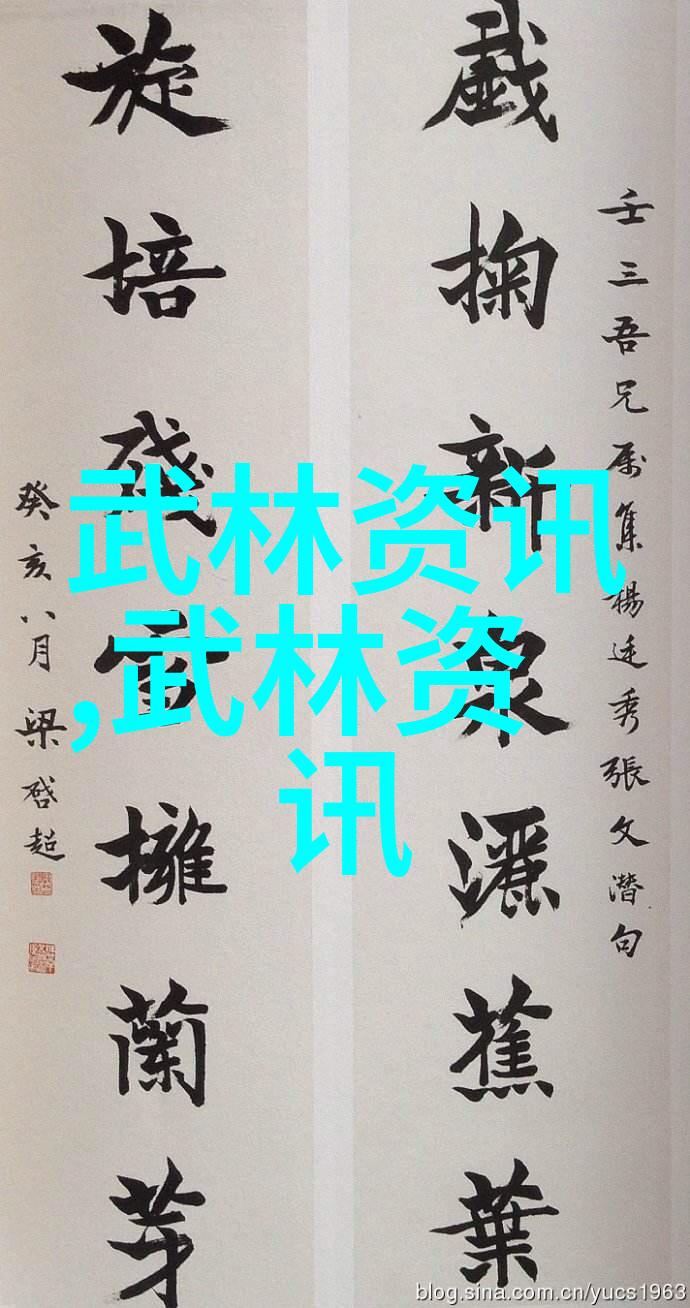 壬三吾兄属集楊廷秀張文潛句
戲掬新泉灑蕉葉
旋培殘雪擁蘭芽
癸亥八月梁啓超
武林资讯
,武林资
讯
blog.sina.com.cn/yucs1963